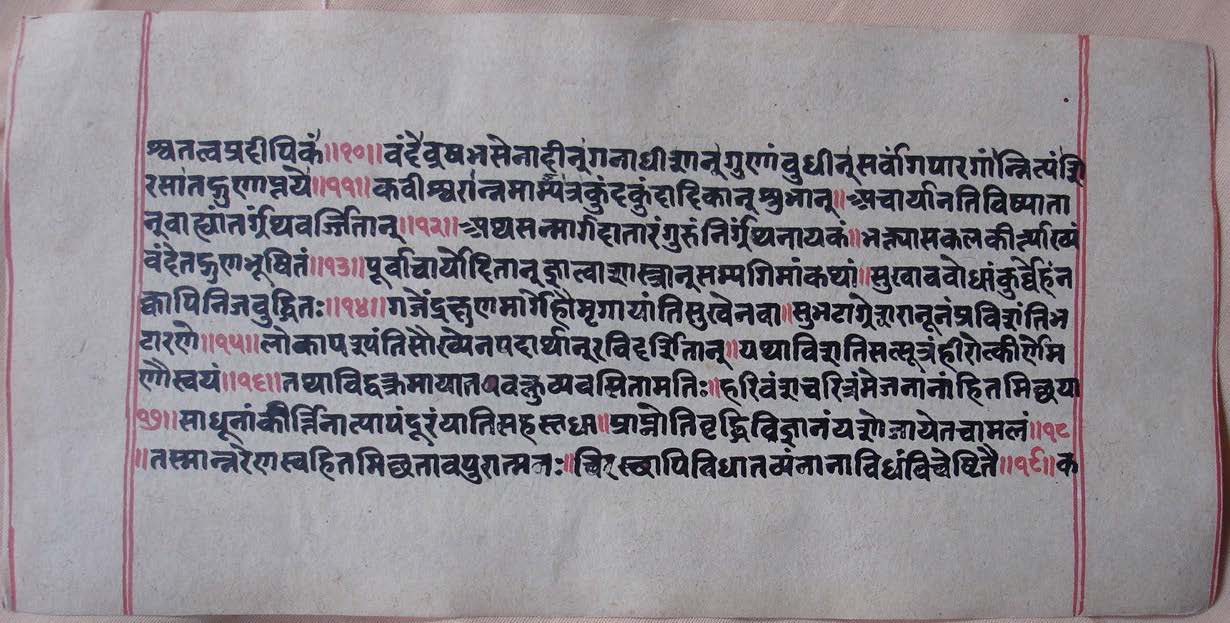 श्वतत्वप्रदीपिकं॥१०॥वंदेवृषभसेनादीन्गनाधीशान्गुणांबुधीन्सर्वांगपारगान्नित्यंशि
रसातद्गुणाप्तये॥११॥कवीश्वरान्नमाम्यत्रकुंदकुंदादिकान्शुभान्॥अचार्यानतिविख्याता
न्वाह्यांतर्ग्रंथवर्जितान्॥१२॥अथसन्मार्गदातारंगुरुंनिर्ग्रंथनायकं॥भक्त्यासकलकीर्त्याख्यं
वंदेतद्गुणभूषितं॥१३॥पूर्वाचार्योदितान्ज्ञात्वाशास्त्रान्सम्यगिमांकथां॥सुखाववोधांकुर्व्वेहंन
क्वापिनिजवुद्धितः॥१४॥गजेंद्रक्षुणमार्गेहौमृगायांतिसुखेनवा॥सुभटाग्रेशरानूनंप्रविशंतिभ
टारणे॥१५॥लोकापश्यंतिसौख्येनपदार्थान्रविदर्शितान्॥यथाविशतिसत्सूत्रंहीरोत्कीर्णेम
णौस्वयं॥१६॥तथाविद्वक्रमायातवक्तुव्यवसितामतिः॥हरिवंशचरित्रंमेजनानांहितमिच्छया
१७॥साधूनांकीर्त्तिनात्पापंदूरंयातिसहस्त्रधा॥प्राप्नोतिवृद्धिविज्ञानंयशोजायेतचामलं॥१८
॥तस्मान्नरेणस्वहितमिच्छतावपुरात्मनः॥स्थिरस्थापिविधातव्यंनानाविधंविचेष्टितै॥१९॥क